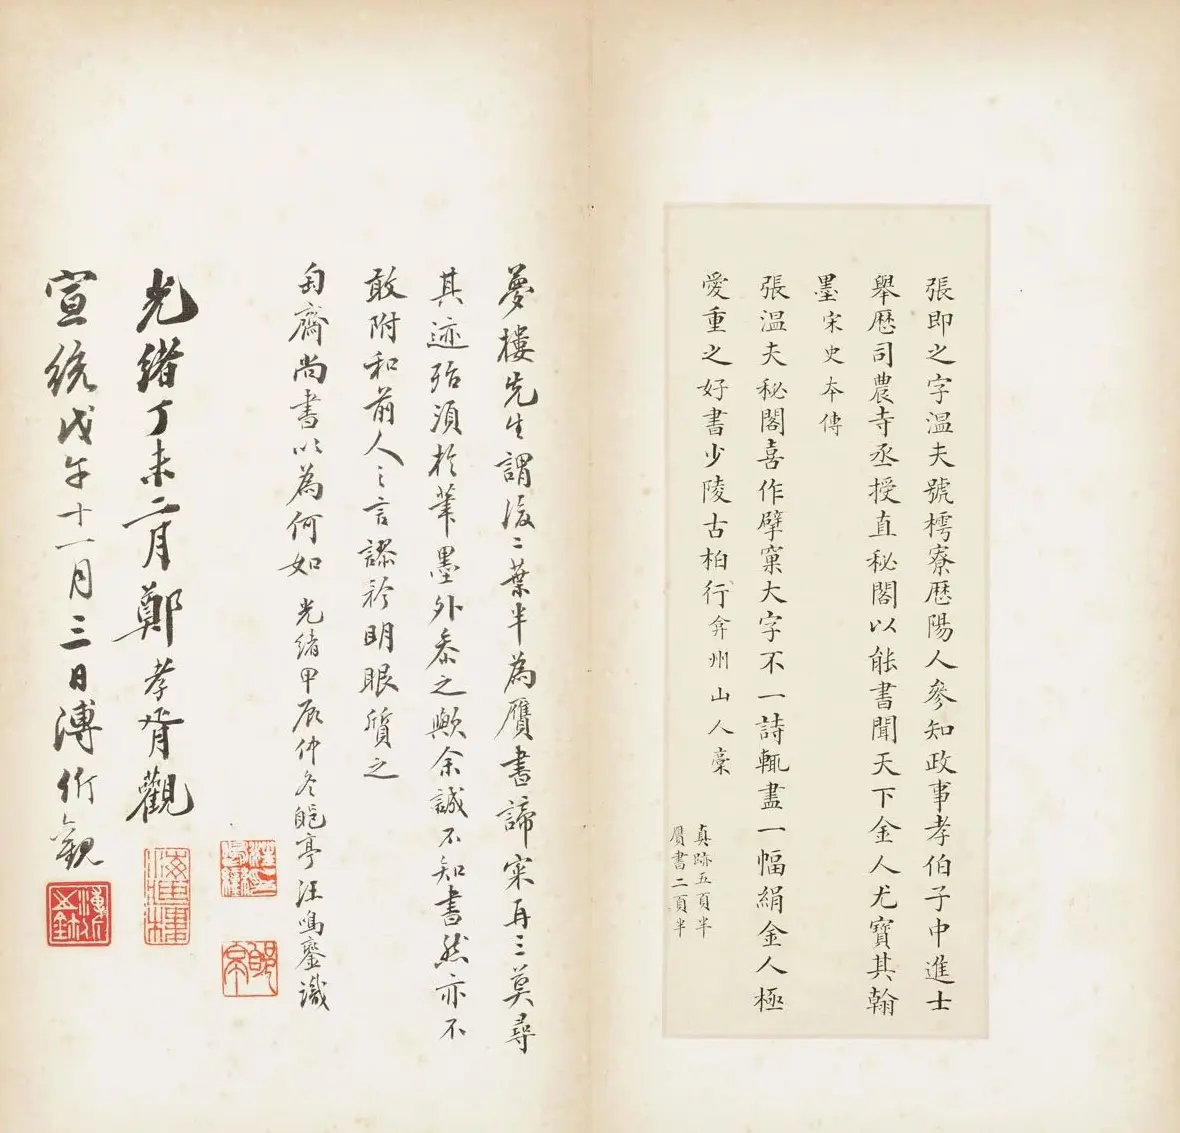 張即之字溫夫號樗寮歷陽人參知政事孝伯子中進士
舉歷司農寺丞授直秘閣以能書聞天下金人尤寶其翰
墨宋史本傳
張溫夫秘閣喜作擘窠大字不一詩輒盡一幅絹金人極
愛重之好書少陵古柏行弇州山人稾
真跡五頁半
贗書二頁半
夢樓先生謂後二葉半為贗書諦宷再三莫尋
其迹殆須於筆墨外叅之歟余誠不知書然亦不
敢附和前人之言謬矜明眼質之
匋齋尚書以為何如 光緒甲辰仲冬郋亭汪鳴鑾識
光緒丁未二月鄭孝胥觀
宣統戊午十一月三日溥伒觀
海藏樓
郋亭